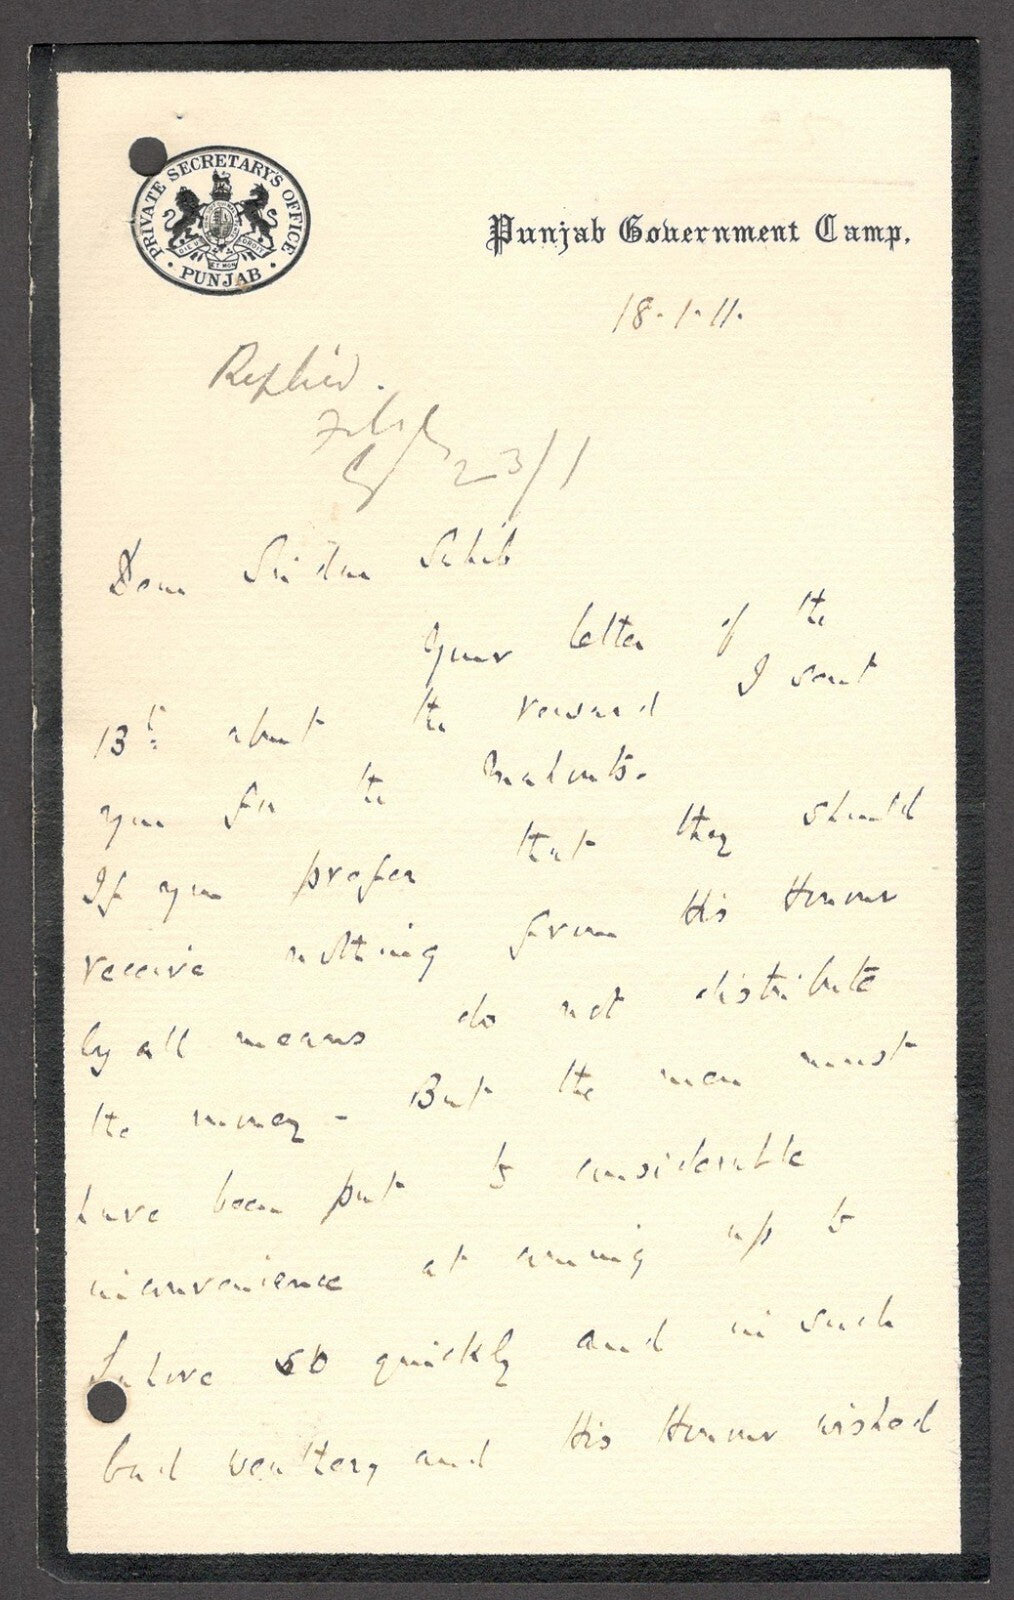 PRIVATE SECRETARY'S OFFICE
· PUNJAB ·
Punjab Government Camp.
18.1.11.
Replied.
File
23/1
Dear Sirdar Sahib
Your letter of the
13th about the reward I sent
you for the Mahouts.
If you prefer that they should
receive nothing from His Honour
by all means do not distribute
the money - But the men must
have been put to considerable
inconvenience at coming up to
Lahore so quickly and in such
bad weather, and His Honour wished